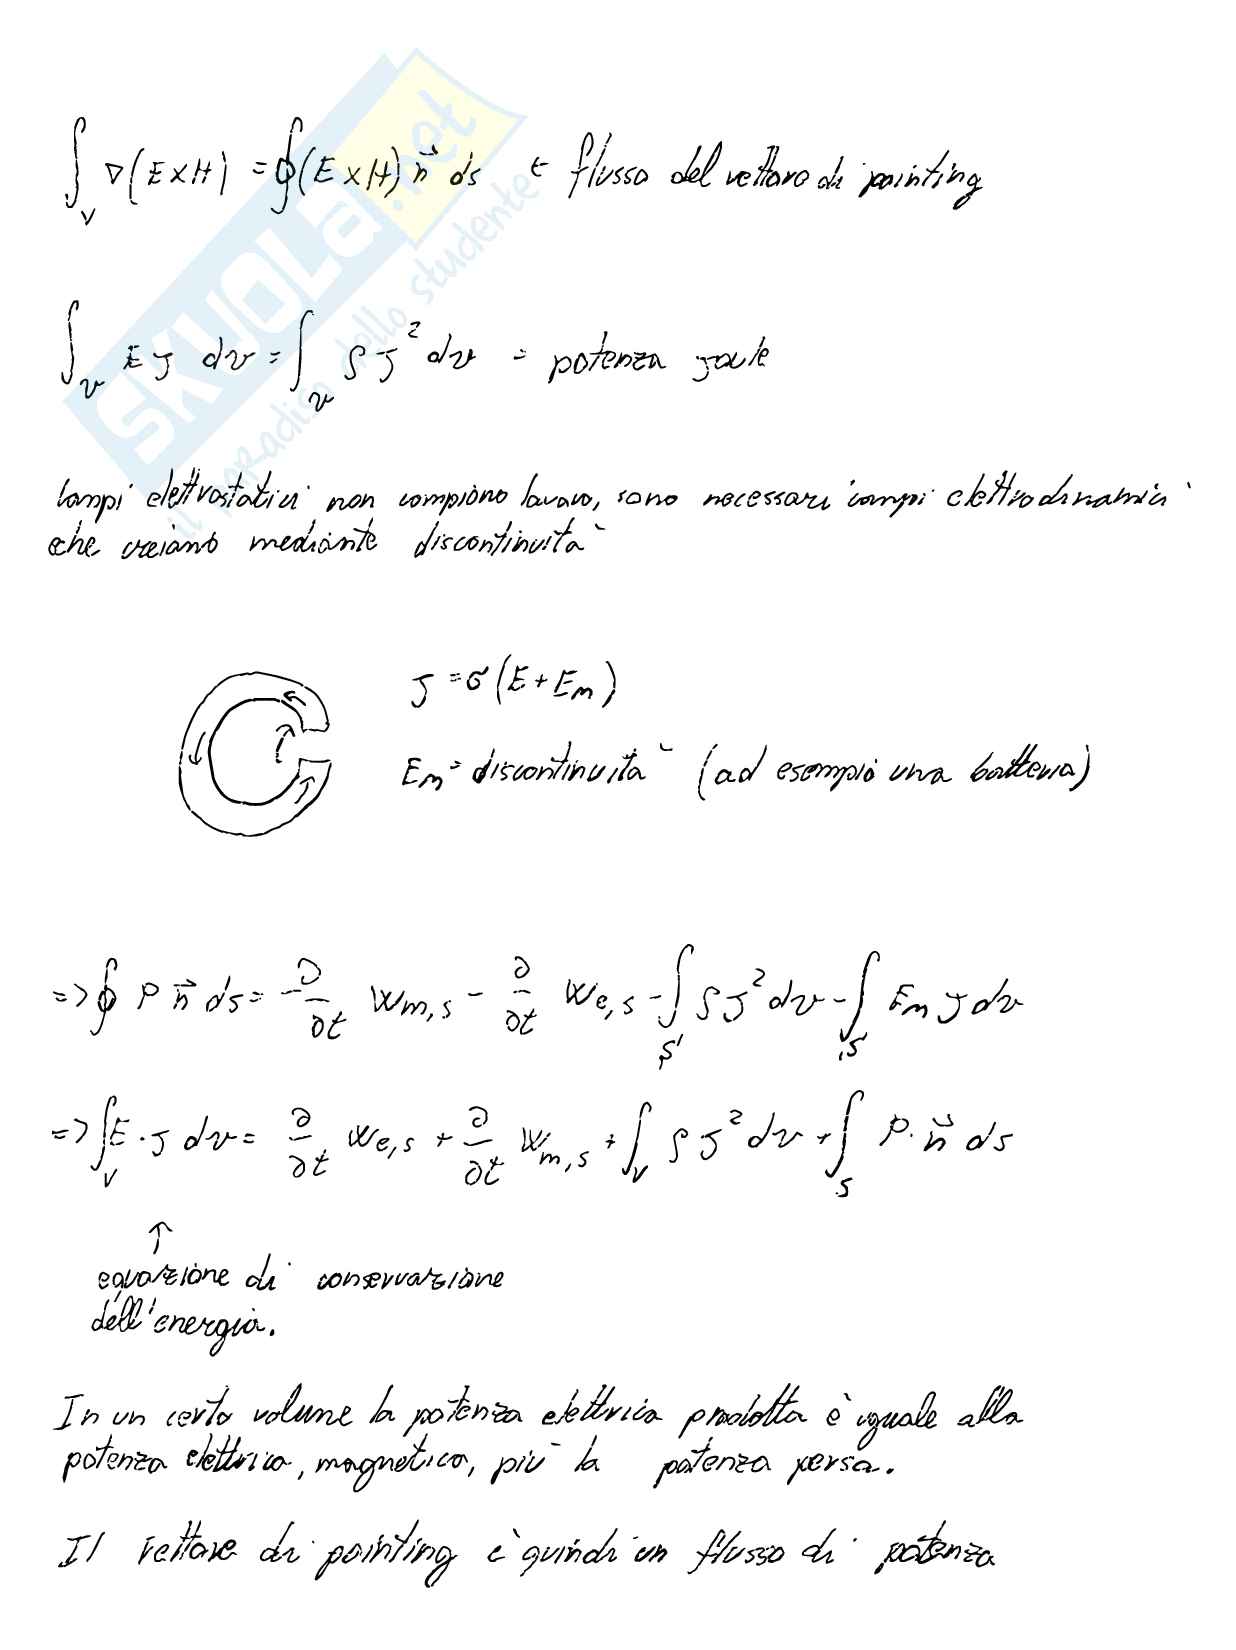 ∫_V ∇(E×H) = ∮(E×H) n⃗ ds ← flusso del vettore di pointing
∫_v E J dv = ∫_v ρ J² dv = potenza joule
campi elettrostatici non compiono lavoro, sono necessari campi elettrodinamici
che creiamo mediante discontinuità
J = σ(E + E_m)
E_m = discontinuità (ad esempio una batteria)
=> ∮ P n⃗ ds = -∂/∂t W_m,s - ∂/∂t W_e,s - ∫_S' ρ J² dv - ∫_S' E_m J dv
=> ∫_V E · J dv = ∂/∂t W_e,s + ∂/∂t W_m,s + ∫_V ρ J² dv + ∫_S P · n⃗ ds
↑
equazione di conservazione
dell'energia.
In un certo volume la potenza elettrica prodotta è uguale alla
potenza elettrica, magnetica, più la potenza persa.
Il vettore di pointing è quindi un flusso di potenza
SKUOLA.net
il paradiso dello studente